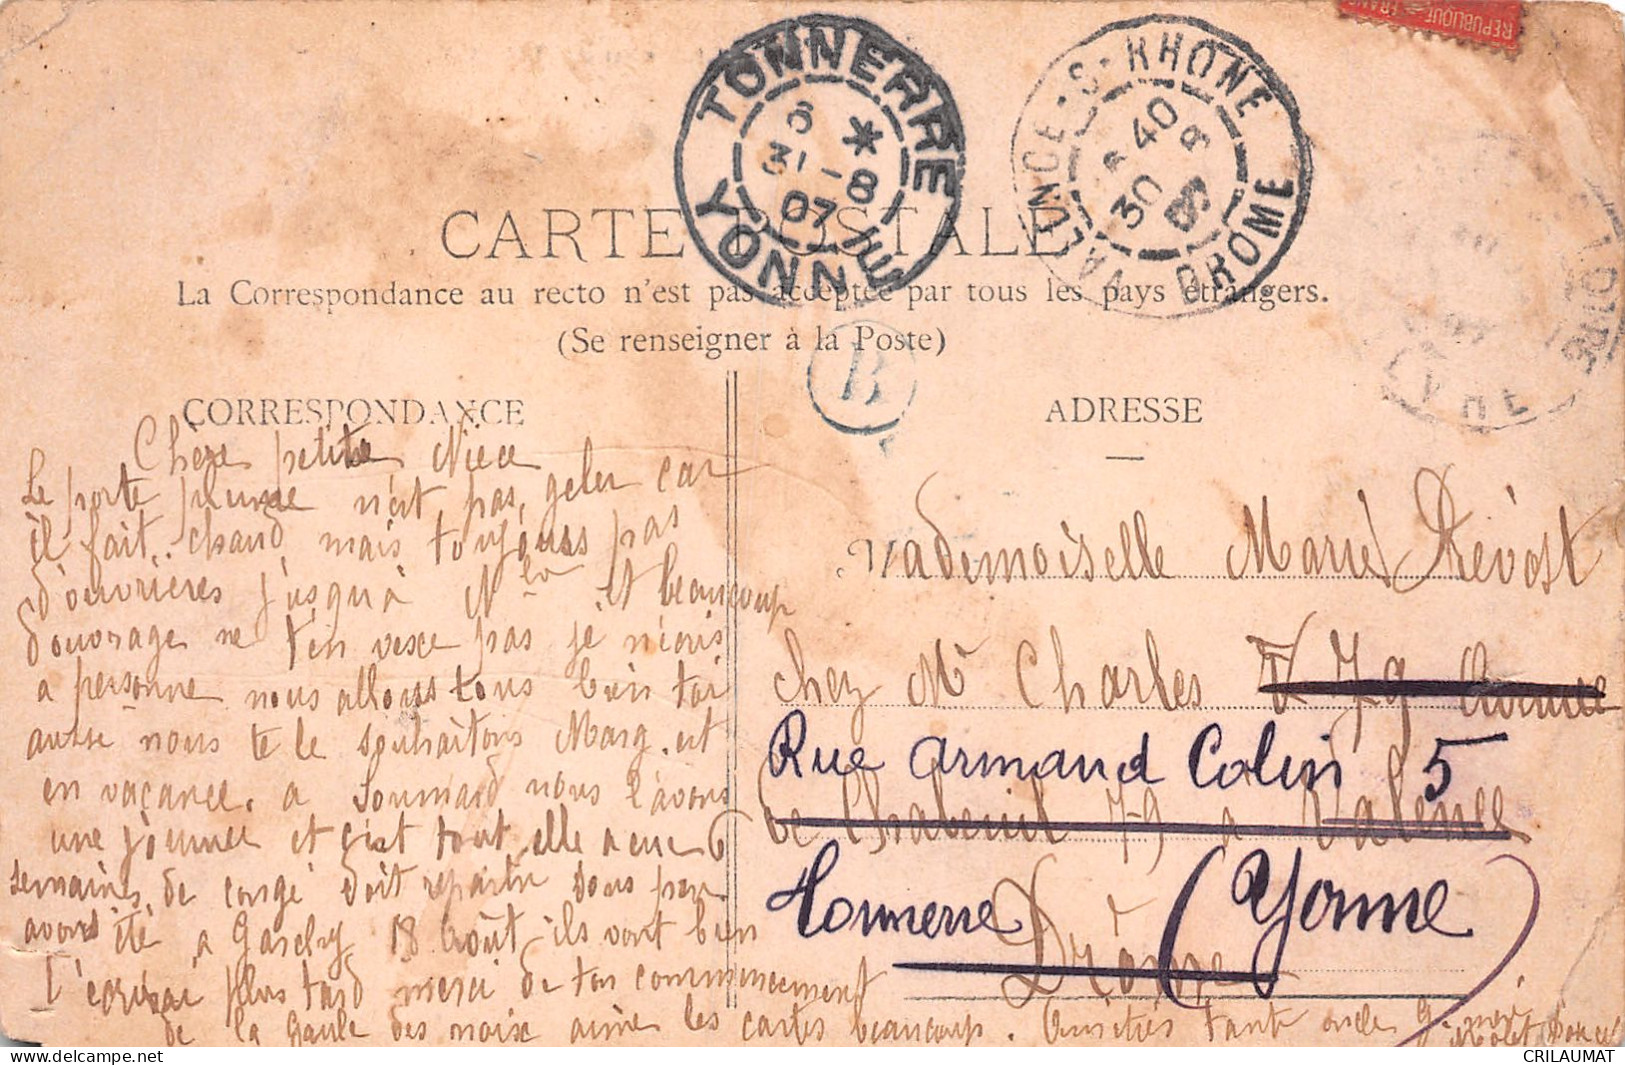 REPUBLIQUE FRAN
TONNERRE
6 *
31 - 8
07
YONNE
VALENCE-S-RHONE
* 40
30 8
DROME
CARTE POSTALE
La Correspondance au recto n'est pas acceptée par tous les pays étrangers.
(Se renseigner à la Poste)
B
CORRESPONDANCE
Chère petite Nièce
Le porte plume n'est pas geler car
il fait chaud mais toujours pas
d'ouvrières jusqu'à Nlo et beaucoup
d'ouvrage ne t'en vexe pas je n'écris
a personne nous allons tous bien toi
ausse nous te le souhaitons Marg. est
en vacance. a nous l'avons
une journée et c'est tout elle a eue 6
semaines de congé doit repartir nous
avons été a 18 Août ils vont bien
t'écrirai plus tard merci de ton commencement
de la Gaule des noise aime les cartes beaucoup. Amitiés tante oncle G.
ADRESSE
Mademoiselle Marie Prévost
chez Mr Charles 79 Avenue
Rue Armand Colin 5
de Chabeuil 79 a Valence
Tonnerre (Yonne)
Drôme
CRILAUMAT